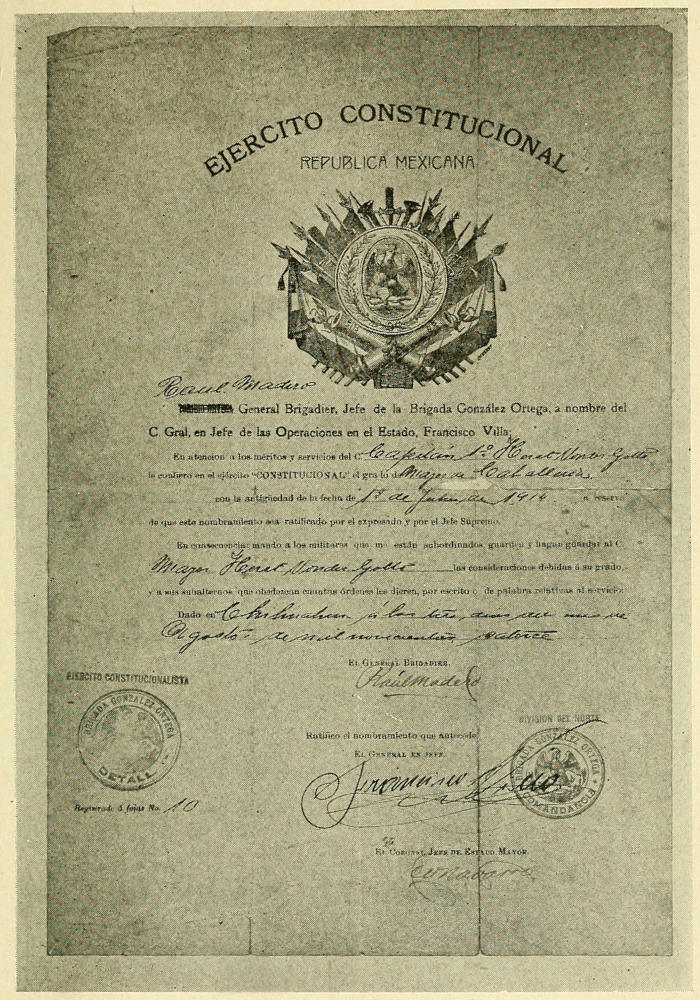 EJERCITO CONSTITUCIONAL
REPUBLICA MEXICANA
Raul Madero
General Brigadier, Jefe de la Brigada González Ortega, a nombre del
C. Gral, en Jefe de las Operaciones en el Estado, Francisco Villa:
En atencion a los méritos y servicios del C. Capitán 1º Horst Von der Goltz
le confiero en el ejército "CONSTITUCIONAL" el grado de Mayor de Caballeria
con la antigüedad de la fecha de 1º de Julio de 1914 a reserva
de que este nombramiento sea ratificado por el expresado y por el Jefe Supremo.
En consecuencia: mando a los militares que me están subordinados, guarden y hagan guardar al C.
Mayor Horst Von der Goltz las consideraciones debidas á su grado,
y a sus subalternos que obedezcan cuantas órdenes les dieren, por escrito ó de palabra relativas al servicio.
Dado en Chihuahua á los tres dias del mes de
Agosto de mil novecientos catorce
EL GENERAL BRIGADIER,
Raúl Madero
EJERCITO CONSTITUCIONALISTA
BRIGADA GONZALEZ ORTEGA
DETALL
DIVISION DEL NORTE
Ratifico el nombramiento que antecede
EL GENERAL EN JEFE,
Francisco Villa
BRIGADA GONZALEZ ORTEGA
COMANDANCIA
Registrado á fojas No. 10
EL CORONEL JEFE DE ESTADO MAYOR.